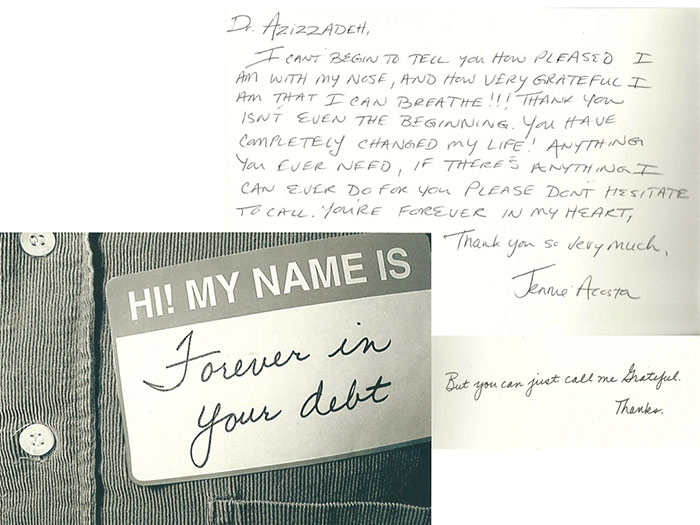 Dr. AZIZZADEH,
I CANT BEGIN TO TELL YOU HOW PLEASED I
AM WITH MY NOSE, AND HOW VERY GRATEFUL I
AM THAT I CAN BREATHE!!! THANK YOU
ISN'T EVEN THE BEGINNING. YOU HAVE
COMPLETELY CHANGED MY LIFE! ANYTHING
YOU EVER NEED, IF THERE'S ANYTHING I
CAN EVER DO FOR YOU PLEASE DON'T HESITATE
TO CALL. YOU'RE FOREVER IN MY HEART,
Thank you so very much,
Jennie Acosta
HI! MY NAME IS
Forever in
your debt
But you can just call me Grateful.
Thanks.